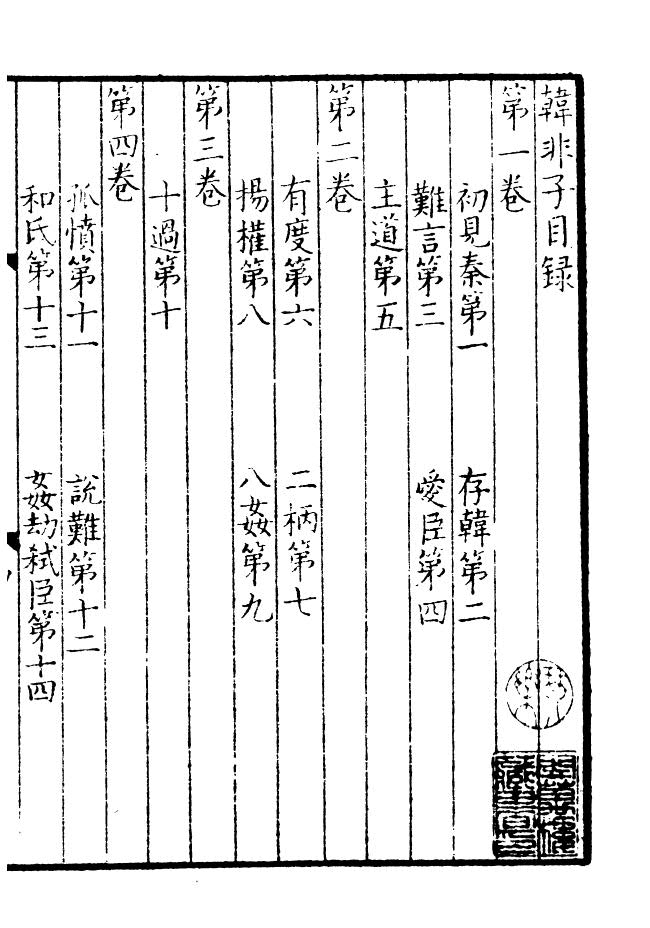 韓非子目録
第一卷
初見秦第一　存韓第二
難言第三　愛臣第四
主道第五
第二卷
有度第六　二柄第七
揚權第八　八姦第九
第三卷
十過第十
第四卷
孤憤第十一　說難第十二
和氏第十三　姦劫弑臣第十四